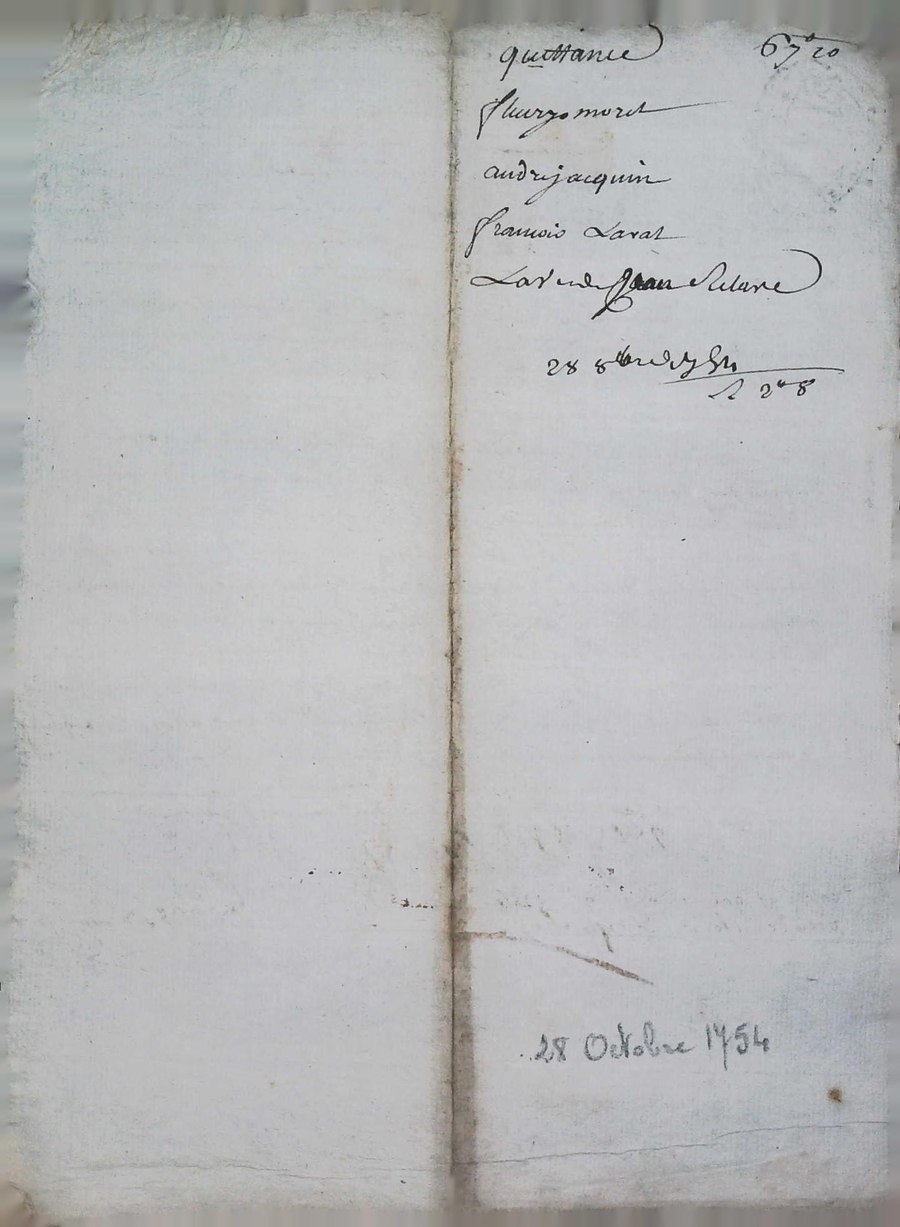 quittance 67 # 10
fleury moret
andre jacquin
francois Larat
La ve de Jean
28 8bre 1754
2 # 8
28 Octobre 1754